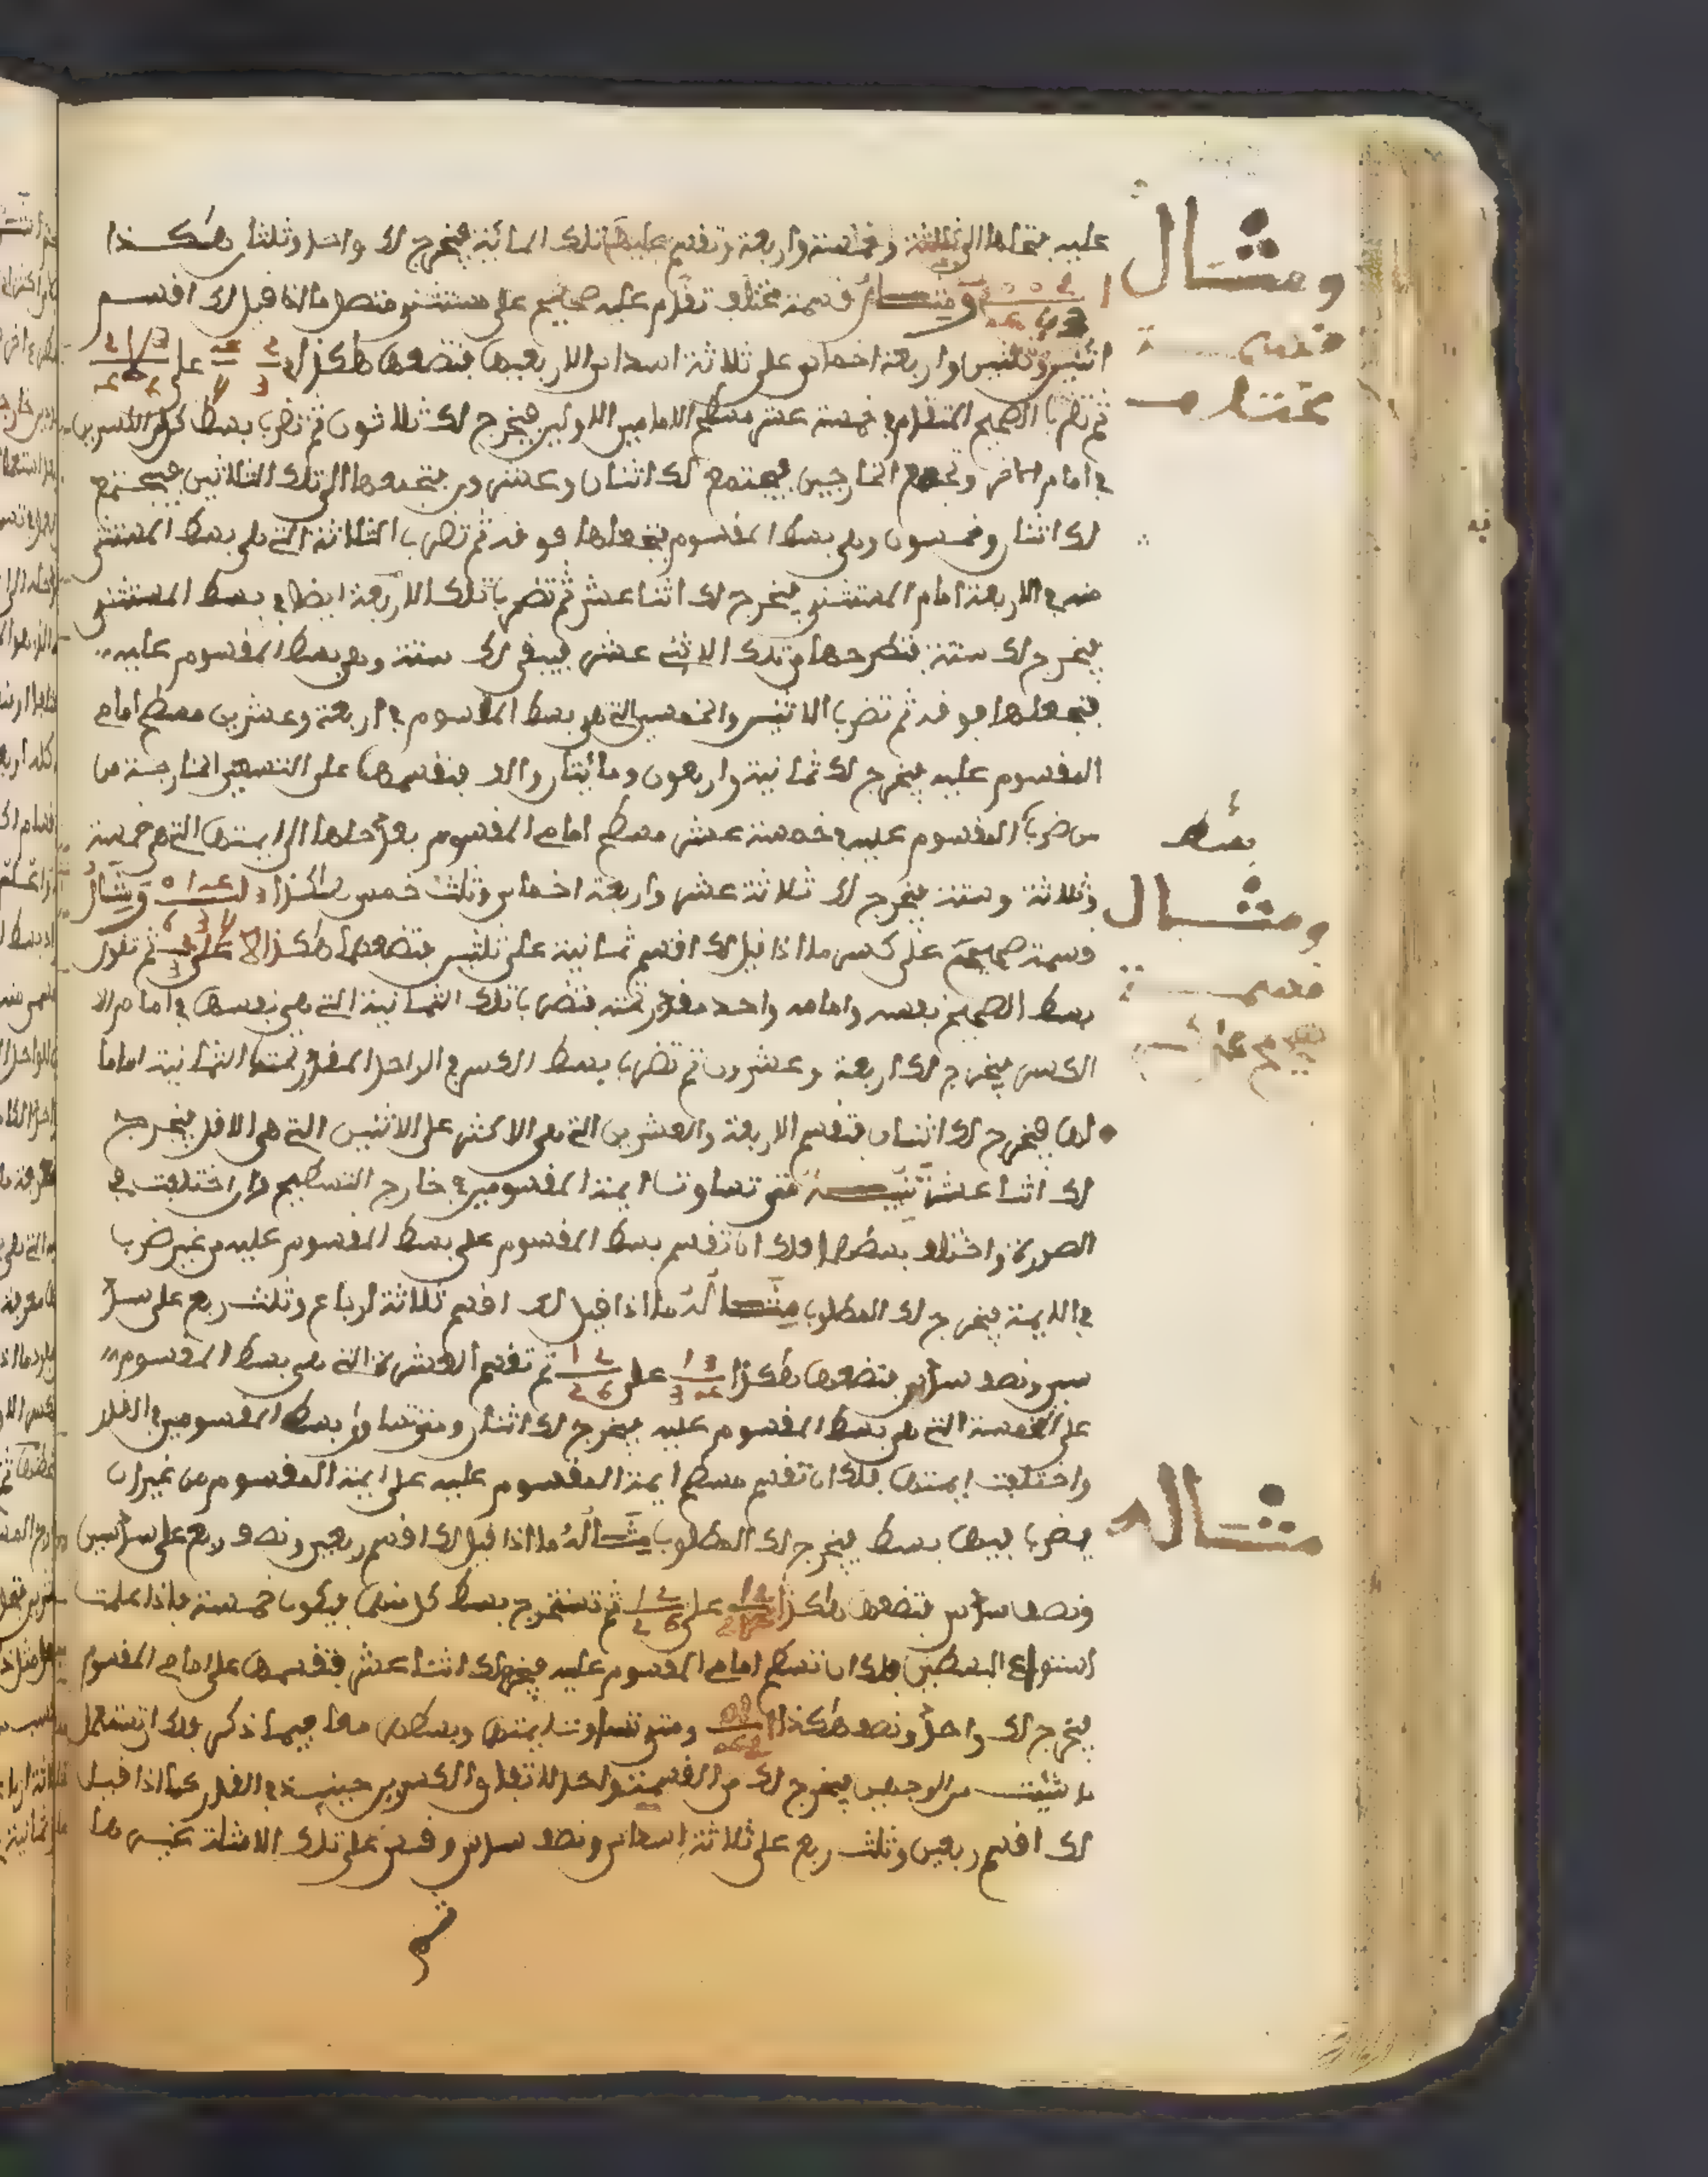 عليه فتحلها الى ثلاثة وخمسة واربعة وتقسم عليها تلك المائة فيخرج لك واحد وثلثا هكذا
ومثال قسمة مختلف تقدم عليه صحيح على مستثنى متصل ما اذا قيل لك اقسم
اثنين وثلثين واربعة اخماس على ثلاثة اسداس الا ربعها فتضعها هكذا على
ثم تضرب الصحيح المتقدم في خمسة عشر مسطح الامامين الاولين فيخرج لك ثلاثون ثم تضرب بسط كل الكسرين
في امام الاخر وتجمع الخارجين فيجتمع لك اثنان وعشرون فتجمعها الى تلك الثلاثين فيجتمع
لك اثنان وخمسون وهي بسط المقسوم فتجعلها فوقه ثم تضرب الثلاثة التي هي بسط المستثنى
منه في الاربعة امام المستثنى فيخرج لك اثنا عشر ثم تضرب تلك الاربعة ايضا في بسط المستثنى
فيخرج لك ستة فتطرحها من تلك الاثني عشر فيبقى لك ستة وهي بسط المقسوم عليه
فتجعلها فوقه ثم تضرب الاثنين والخمسين التي هي بسط المقسوم في اربعة وعشرين مسطح امامي
المقسوم عليه فيخرج لك ثمانية واربعون ومائتان والف فتقسمها على التسعين الخارجة من
من ضرب المقسوم عليه في خمسة عشر مسطح امامي المقسوم بعد حلها الى ايمتها التي هي خمسة
وثلاثة وستة فيخرج لك ثلاثة عشر واربعة اخماس وثلث خمس هكذا ومثال
قسمة صحيح على كسر ما اذا قيل لك اقسم ثمانية على ثلثين فتضعها هكذا 8 على ثم تقدر
بسط الصحيح نفسه وامامه واحد مقدر تحته فتضرب تلك الثمانية التي هي نفسها في امام الا
الكسر فيخرج لك اربعة وعشرون ثم تضرب بسط الكسر في الواحد المقدر تحت الثمانية اماما
لها فيخرج لك اثنان فتقسم الاربعة والعشرين التي هي الاكثر على الاثنين التي هي الاقل فيخرج
لك اثنا عشر تنبيه متى تساوت ايمة المقسومين في خارج التسطيح وان اختلفت في
الصورة واختلف بسطهما فلك ان تقسم بسط المقسوم على بسط المقسوم عليه من غير ضرب
في الايمة فيخرج لك المطلوب مثاله ما اذا قيل لك اقسم ثلاثة ارباع وثلث ربع على سد
سين ونصف سدس فتضعها هكذا على ثم تقسم العشرة التي هي بسط المقسوم
على الخمسة التي هي بسط المقسوم عليه فيخرج لك اثنان ومتى تساوى بسط المقسومين في القدر
واختلفت ايمتها فلك ان تقسم مسطح ايمة المقسوم عليه على ايمة المقسوم من غير ان
يضرب فيها بسط فيخرج لك المطلوب مثاله ما اذا قيل لك اقسم ربعين ونصف ربع على سدسين
ونصف سدس فتضعها هكذا على ثم تستخرج بسط كل منهما فيكون خمسة فاذا علمت
استواء البسطين فلك ان تسطح امامي المقسوم عليه فيخرج لك اثنا عشر فتقسمها على امامي المقسوم
فيخرج لك واحد ونصف هكذا ومتى تساوت ايمتها وبسطها معا فيما ذكر فلك ان تستعمل
ما شئت من الوجهين فيخرج لك من القسمة واحد لاتفاق الكسرين حينئذ في القدر كما اذا قيل
لك اقسم ربعين وثلث ربع على ثلاثة اسداس ونصف سدس وقس على تلك الامثلة غيرها
ومثال
قسمة
مختلف
بسط
ومثال
قسمة
صحيح على كسر
مثاله